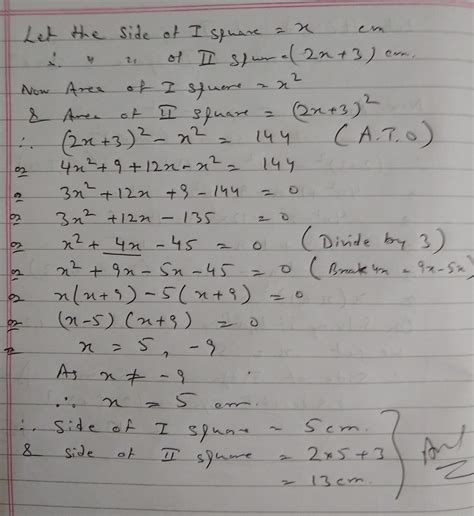 Let the Side of I square = x cm
∴ " " of II squr = (2x+3) cm.
Now Area of I square = x²
& Area of II square = (2x+3)²
∴ (2x+3)² - x² = 144 (A.T.O)
or 4x² + 9 + 12x - x² = 144
or 3x² + 12x + 9 - 144 = 0
or 3x² + 12x - 135 = 0
or x² + 4x - 45 = 0 (Divide by 3)
or x² + 9x - 5x - 45 = 0 (Break 4x = 9x-5x)
or x(x+9) - 5(x+9) = 0
or (x-5) (x+9) = 0
x = 5, -9
As x ≠ -9
∴ x = 5 cm.
∴ Side of I square = 5 cm.
& side of II square = 2x5+3
= 13 cm.
Ans